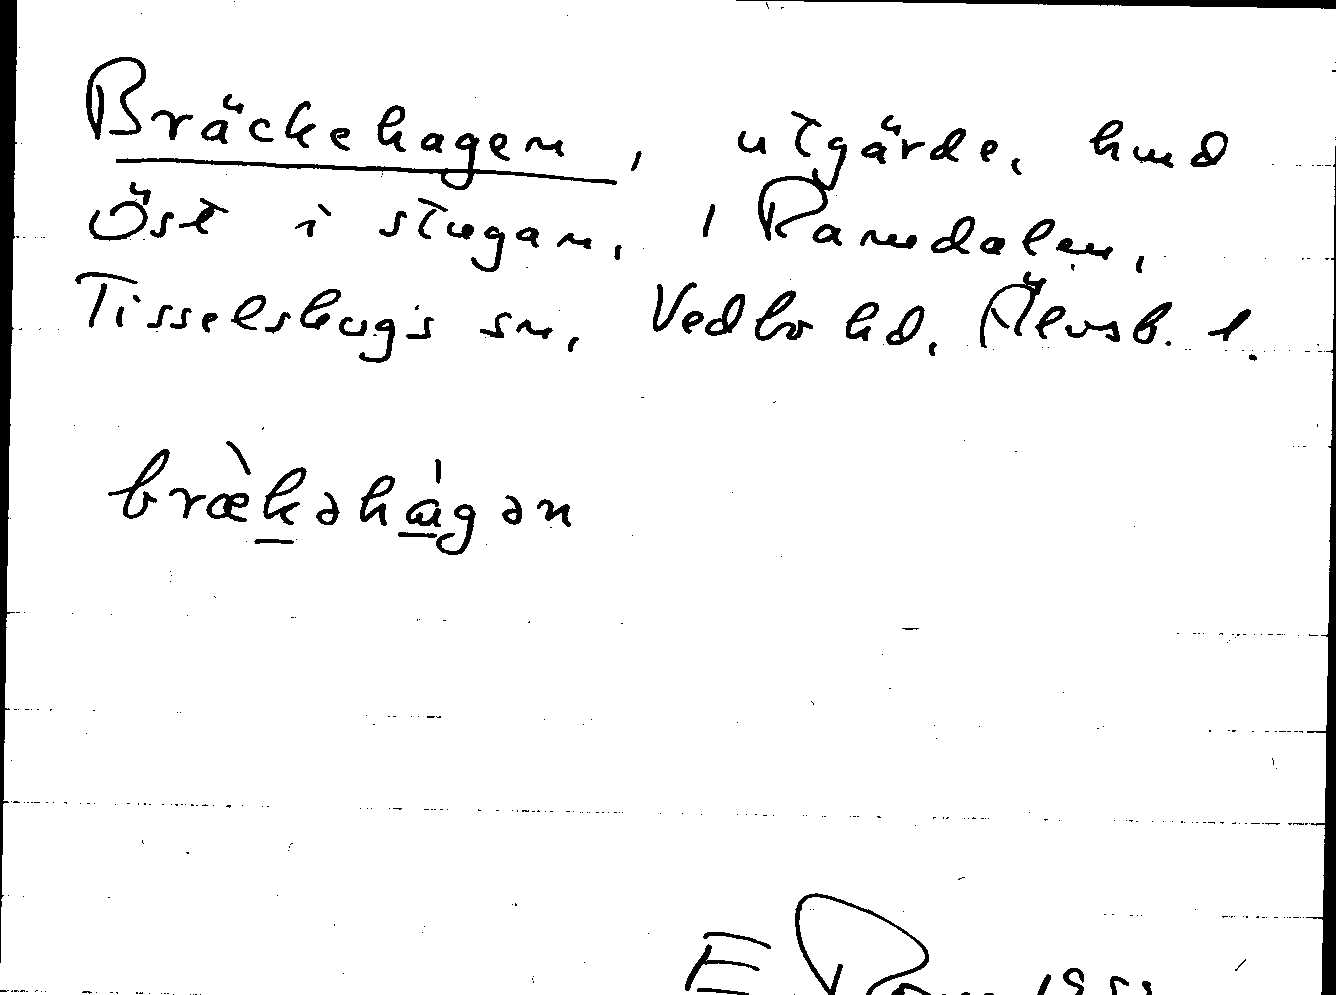 Bräckehagen, utgärde, hmd
Öst i stugan, i Ramdalen,
Tisselskogs sn, Vedbo hd, Älvsb. l.
bræ̀kəhágən
E